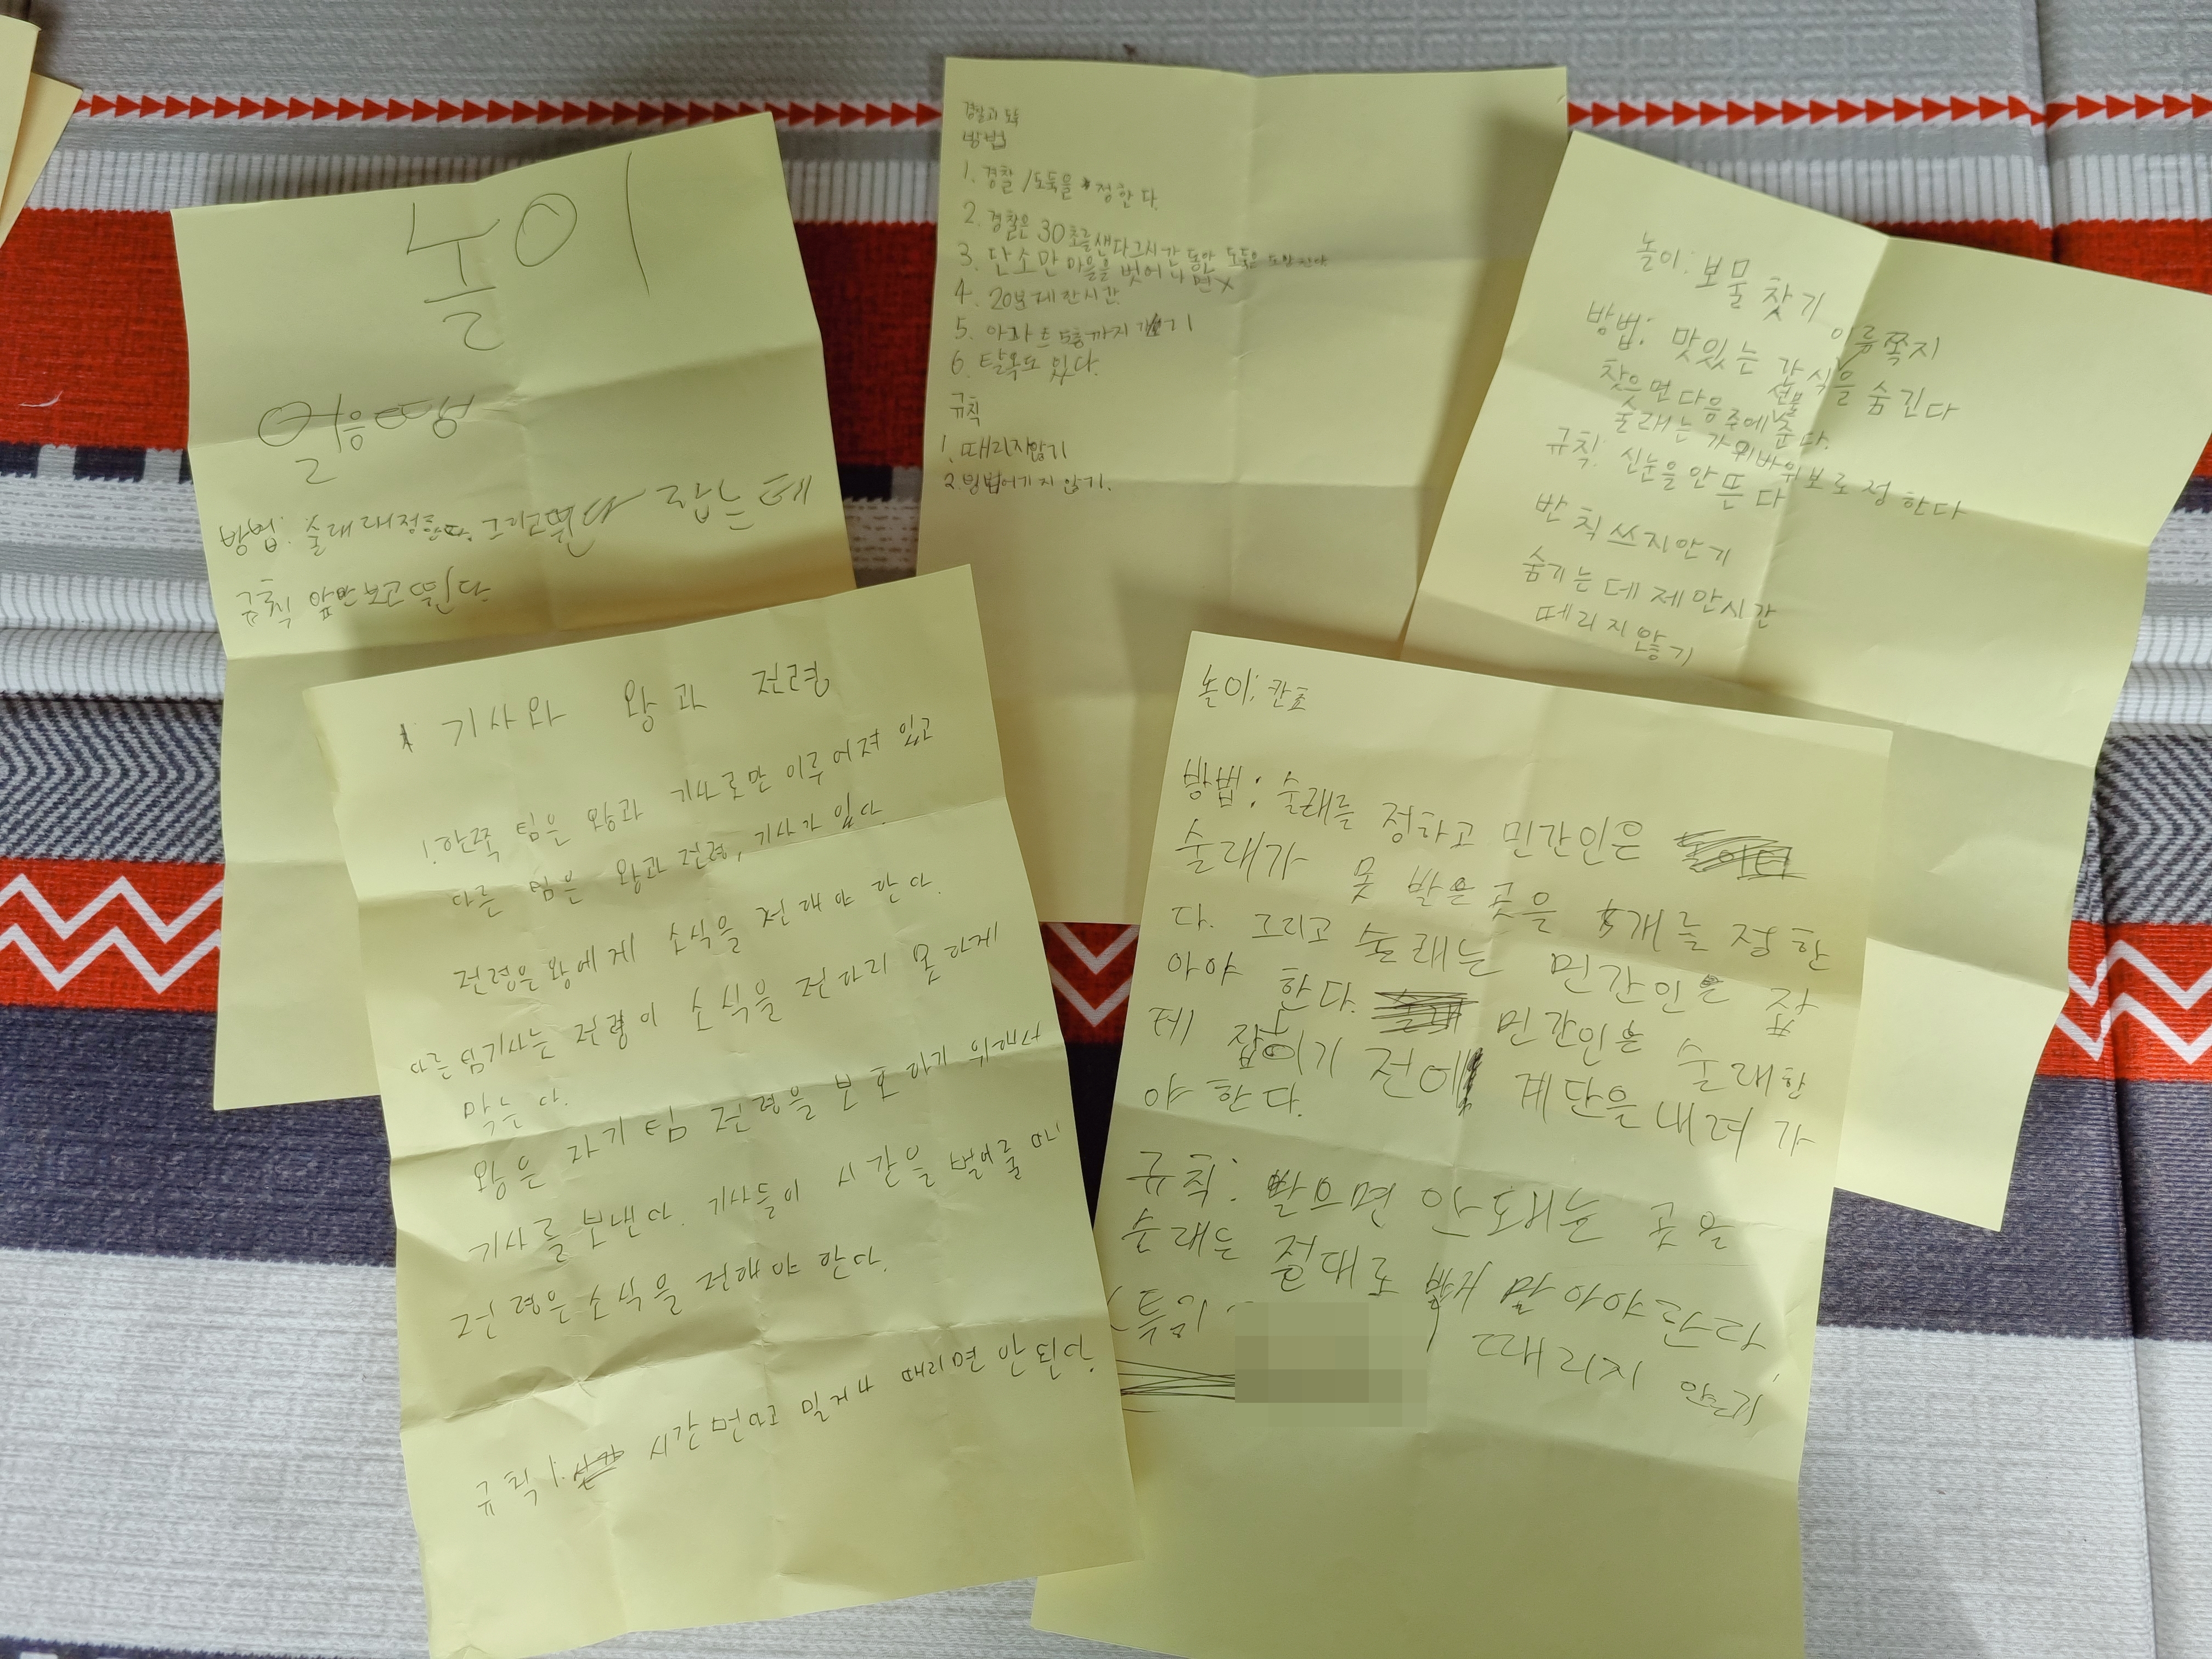 놀이
얼음땡
방법: 술래 정한다. 그리고 뛴다 잡는데
규칙 앞만보고 뛴다
경찰과 도둑
방법
1. 경찰/도둑을 정한다.
2. 경찰은 30초를 샌다 그시간 동안 도둑은
3. 단소만 마을을 벗어나면 X
4. 20분 제한시간
5. 아파트 5층까지
6. 탈옥도 있다.
규칙
1. 때리지않기
2. 방법어기지 않기.
놀이: 보물 찾기
이름쪽지
방법: 맛있는 간식을 숨긴다
찾으면 다음주에 선물 준다.
술래는 가위바위보로 정한다
규칙: 실눈을 안 뜬다
반칙쓰지안기
숨기는데 제한시간
떼리지 않기
기사와 왕과 전령
한쪽 팀은 왕과 기사로만 이루어져 있고
다른 팀은 왕과 전령, 기사가 있다.
전령은 왕에게 소식을 전해야 한다.
다른 팀기사는 전령이 소식을 전하지 못하게
막는다.
왕은 자기팀 전령을 보호하기 위해서
기사를 보낸다. 기사들이 시간을 벌어줄때
전령은 소식을 전해야 한다.
규칙 시간 때리면 안된다.
놀이: 칸표
방법: 술래를 정하고 민간인은
술래가 못 발은 곳을 5개를 정한
다. 그리고 술래는 민간인을 잡
아야 한다. 민간인은 술래한
테 잡히기 전에 계단을 내려 가
야 한다.
규칙: 발으면 안돼는 곳을
술래는 절대로 발 말아야한다.
(특길 때리지 않기